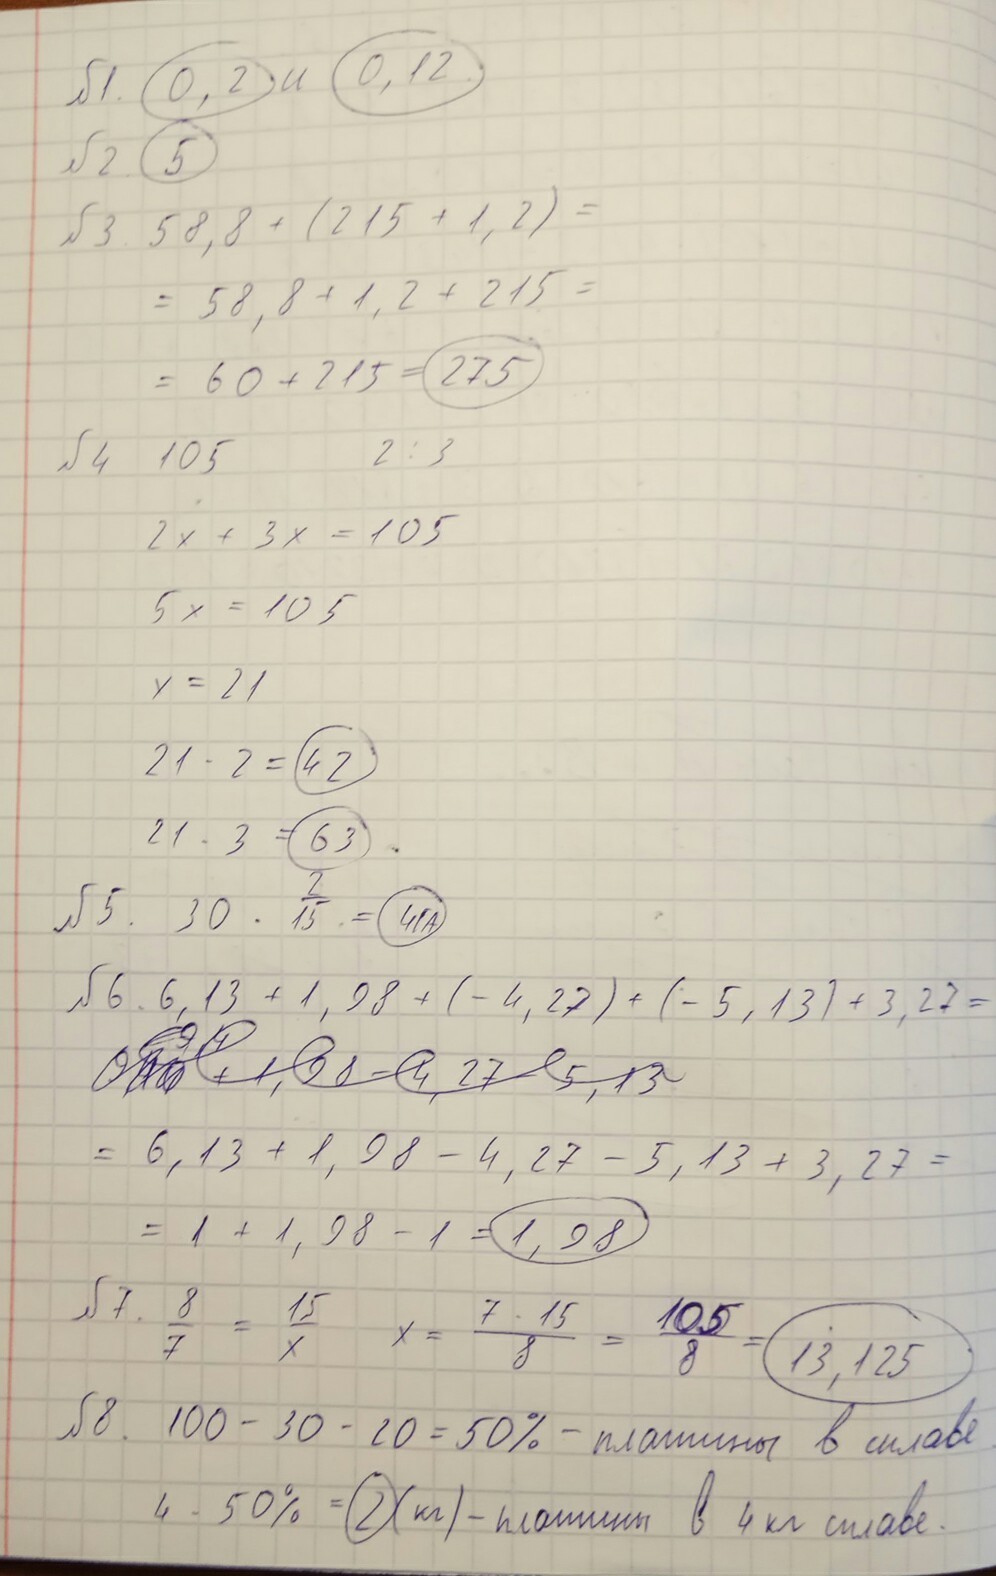 №1. 0,2 и 0,12.
№2. 5
№3. 58,8 + (215 + 1,2) =
= 58,8 + 1,2 + 215 =
= 60 + 215 = 275
№4 105 2 : 3
2x + 3x = 105
5x = 105
x = 21
21 · 2 = 42
21 · 3 = 63.
№5. 30 · 2/15 =
№6. 6,13 + 1,98 + (-4,27) + (-5,13) + 3,27 =
+ 1,98 - 4,27 - 5,13
= 6,13 + 1,98 - 4,27 - 5,13 + 3,27 =
= 1 + 1,98 - 1 = 1,98
№7. 8/7 = 15/x x = 7 · 15/8 = 105/8 = 13,125
№8. 100 - 30 - 20 = 50% - платины в сплаве.
4 · 50% = 2 (кг) - платины в 4 кг сплаве.